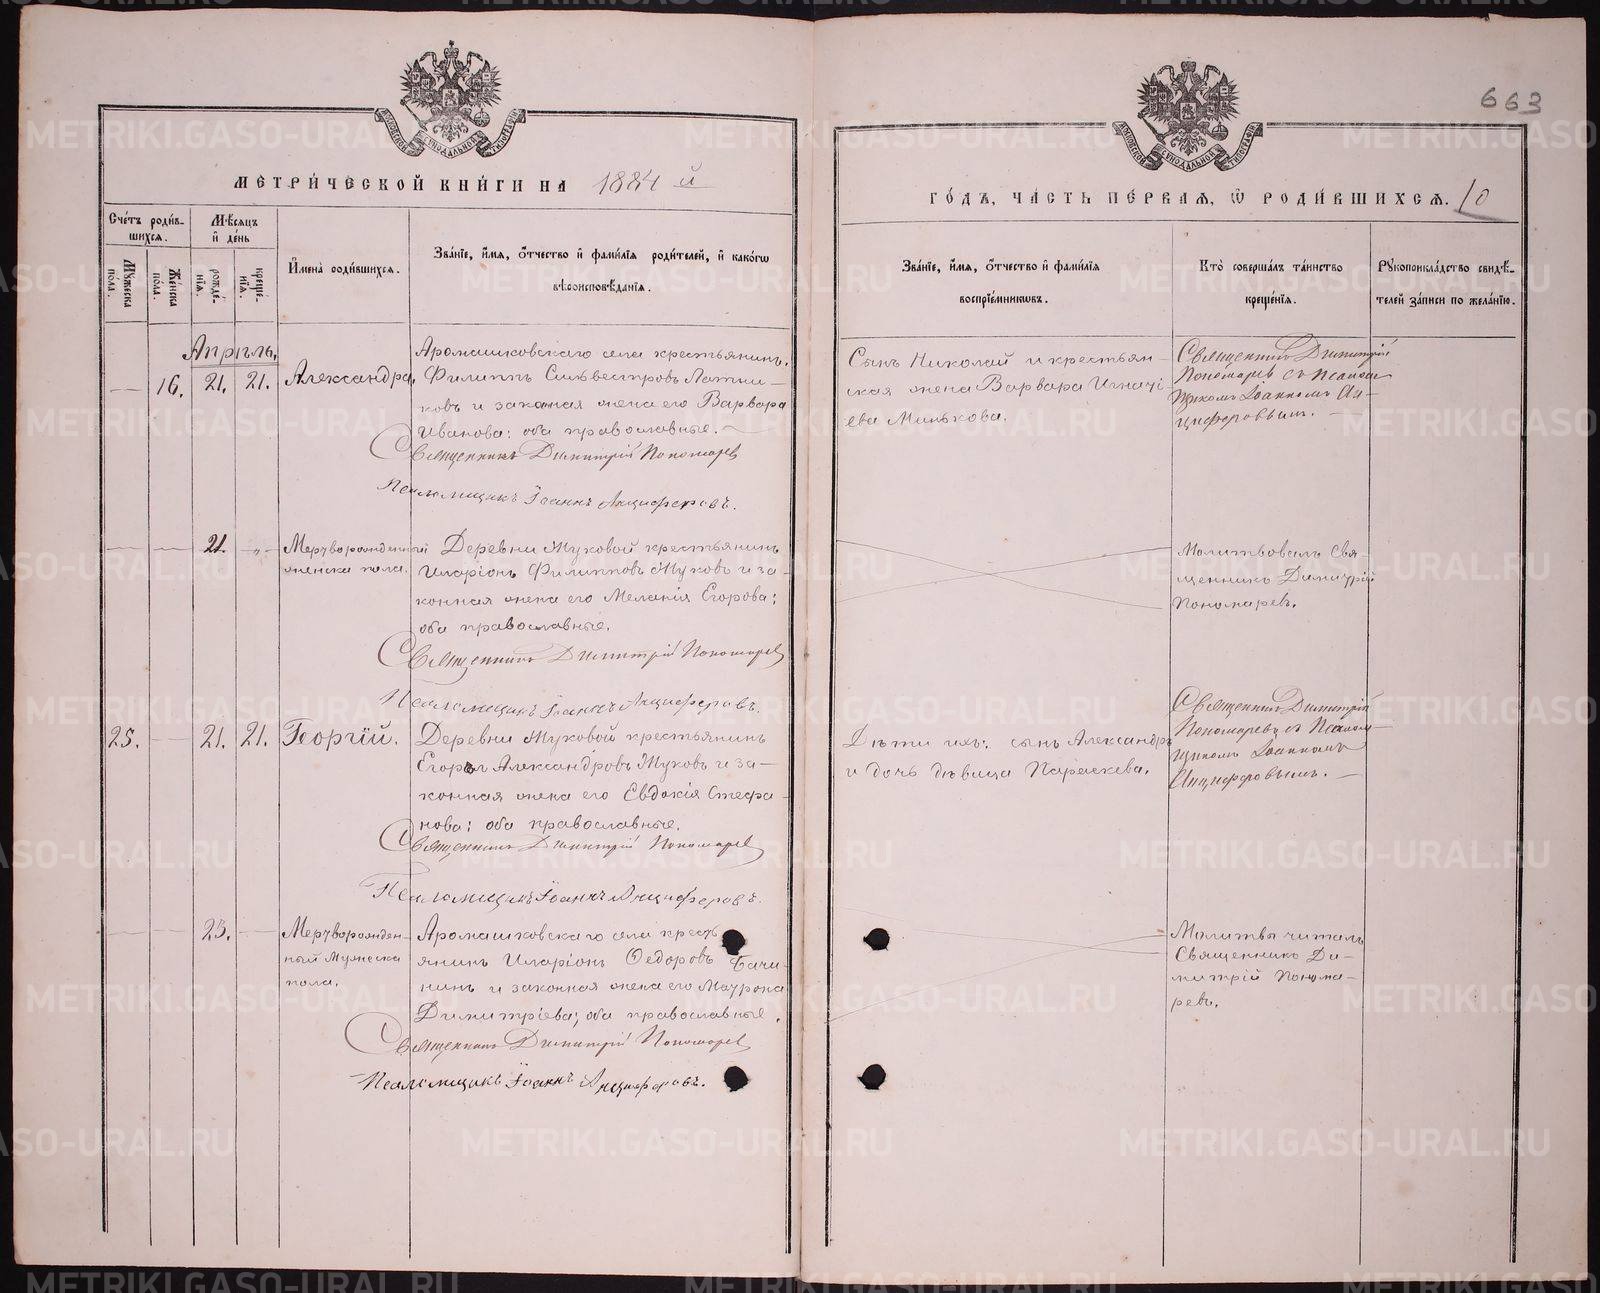 663
МОСКОВСКОЙ СУНОДАЛЬНОЙ ТИПОГРАФІИ
МОСКОВСКОЙ СУНОДАЛЬНОЙ ТИПОГРАФІИ
МЕТРИ́ЧЕСКОЙ КНИ́ГИ НА 1884 й
ГО́ДЪ, ЧА́СТЬ ПЕ́РВАЯ, Ѿ РОДИ́ВШИХСЯ. 10
Сче́тъ роди́в-
шихся.
Мѣ́сяцъ
и҆ де́нь
Му́жеска
по́ла.
Же́нска
по́ла.
рожде́-
нїѧ.
креще́-
нїѧ.
И҆мена̀ роди́вшихся.
Зва́нїе, и҆́мя, ѻ҆́тчество и҆ фами́лїя роди́телей, и҆ како́гѡ
вѣроисповѣ́данїя.
Зва́нїе, и҆́мя, ѻ҆́тчество и҆ фами́лїя
воспрїе́мниковъ.
Кто̀ соверша́лъ та́инство
креще́нїя.
Рꙋкоприкла́дство свидѣ́-
телей за́писи по жела́нїю.
Апрѣль.
16. 21. 21. Александра,
Аромашковскаго села крестьянинъ
Филиппъ Сильвестровъ Латни-
ковъ и законная жена его Варвара
Иванова: оба православные.
Священникъ Димитрій Пономарев
Псаломщикъ Іоаннъ Анциферовъ.
Сынъ Николай и крестьян-
ская жена Варвара Игнатi-
ева Минькова.
Священникъ Димитрій
Пономаревъ съ псалом-
щикомъ Іоанномъ Ан-
циферовымъ.
21. Мертворожденный
женска пола.
Деревни Муковой крестьянинъ
Иларіонъ Филипповъ Муковъ и за-
конная жена его Меланія Егорова;
оба православные.
Священникъ Димитрій Пономарев
Псаломщикъ Іоаннъ Анциферовъ.
Молитвовалъ Свя
щенникъ Димитрій
Пономаревъ.
25. 21. 21. Георгій.
Деревни Муковой крестьянинъ
Егоръ Александровъ Муковъ и за-
конная жена его Евдокія Стефа-
нова; оба православные.
Священникъ Димитрій Пономарев
Псаломщикъ Іоаннъ Анциферовъ.
Дѣти ихъ: сынъ Александръ
и дочь дѣвица Параскева.
Священникъ Димитрій
Пономаревъ съ Псалом-
щикомъ Іоанномъ
Анциферовымъ.
23. Мертворожден-
ный Мужеска
пола.
Аромашковскаго села кресть
янинъ Иларіонъ Ѳедоровъ Бачи-
нинъ и законная жена его Маурона
Димитріева; оба православные.
Священникъ Димитрій Пономарев
Псаломщикъ Іоаннъ Анциферовъ.
Молитвы читалъ
Священникъ Ди-
митрій Понома-
ревъ.
METRIKI.GASO-URAL.RU